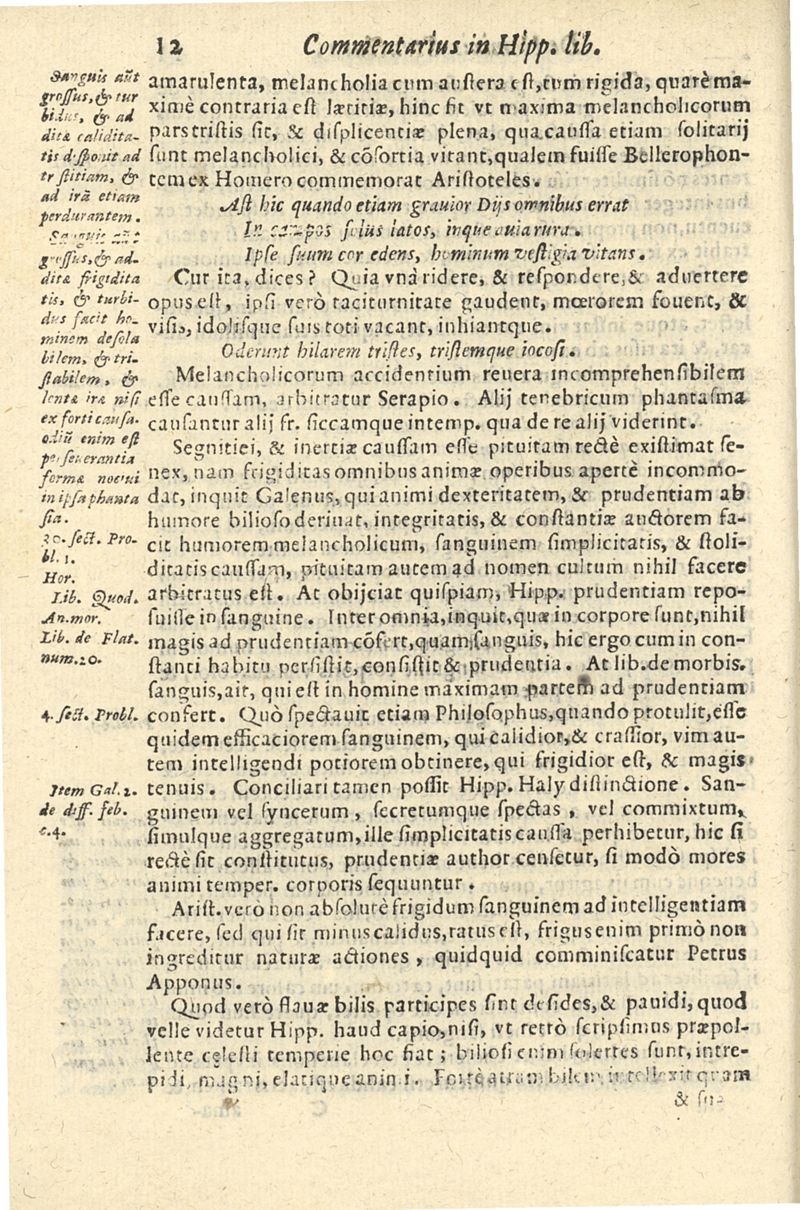 12 Commentarius in Hipp. lib.
amarulenta, melancholia cum austera est, tum rigida, quarè ma-
ximè contraria est lætitiæ, hinc fit vt maxima melancholicorum
pars tristis sit, & displicentiæ plena, qua caussa etiam solitarij
sunt melancholici, & cõsortia vitant, qualem fuisse Bellerophon-
tem ex Homero commemorat Aristoteles.
Ast hic quando etiam grauior Dijs omnibus errat
In campos solus latos, inque auia rura.
Ipse suum cor edens, hominum vestigia vitans.
Cur ita, dices? Quia vnà ridere, & respondere, & aduertere
opus est, ipsi verò taciturnitate gaudent, mœrorem fouent, &
visis, idolisque suis toti vacant, inhiantque.
Oderunt hilarem tristes, tristemque iocosi.
Melancholicorum accidentium reuera incomprehensibilem
esse caussam, arbitratur Serapio. Alij tenebricum phantasma
causantur alij fr. siccamque intemp. qua de re alij viderint.
Segnitiei, & inertiæ caussam esse pituitam rectè existimat se-
nex, nam frigiditas omnibus animæ operibus apertè incommo-
dat, inquit Galenus, qui animi dexteritatem, & prudentiam ab
humore bilioso deriuat, integritatis, & constantiæ auctorem fa-
cit humorem melancholicum, sanguinem simplicitatis, & stoli-
ditatis caussam, pituitam autem ad nomen cultum nihil facere
arbitratus est. At obijciat quispiam, Hipp. prudentiam repo-
suisse in sanguine. Inter omnia, inquit, quæ in corpore sunt, nihil
magis ad prudentiam cõfert, quam sanguis, hic ergo cum in con-
stanti habitu persistit, consistit & prudentia. At lib. de morbis.
sanguis, ait, qui est in homine maximam partem ad prudentiam
confert. Quò spectauit etiam Philosophus, quando protulit, esse
quidem efficaciorem sanguinem, qui calidior, & crassior, vim au-
tem intelligendi potiorem obtinere, qui frigidior est, & magis
tenuis. Conciliari tamen possit Hipp. Haly distinctione. San-
guinem vel syncerum, secretumque spectas, vel commixtum,
simulque aggregatum, ille simplicitatis caussa perhibetur, hic si
rectè sit constitutus, prudentiæ author censetur, si modò mores
animi temper. corporis sequuntur.
Arist. verò non absolutè frigidum sanguinem ad intelligentiam
facere, sed qui sit minus calidus, ratus est, frigus enim primò non
ingreditur naturæ actiones, quidquid comminiscatur Petrus
Apponus.
Quod verò flauæ bilis participes sint desides, & pauidi, quod
velle videtur Hipp. haud capio, nisi, vt retrò scripsimus præpol-
lente celesti temperie hoc fiat; biliosi enim solertes sunt, intre-
pidi, magni, elatique animi. Fortè atram bilem intellexit quam
& sua
Sanguis aũt
grossus, & tur
bidus, & ad
ditæ calidita-
tis disponit ad
tristitiam, &
ad irã etiam
perdurantem.
Sanguis aũt
grossus, & ad-
ditæ frigidita
tis, & turbi-
dus facit ho-
minem desola
bilem, & tri-
stabilem, &
lentæ iræ nisi
ex forti causa.
odiũ enim est
perseuerantia
formæ nociui
in ipsa phanta
sia.
30. sect. Pro-
bl. 1.
Hor.
Lib. Quod.
An. mor.
Lib. de Flat.
num. 20.
4. sect. Probl.
Item Gal. 2.
de diff. feb.
c. 4.